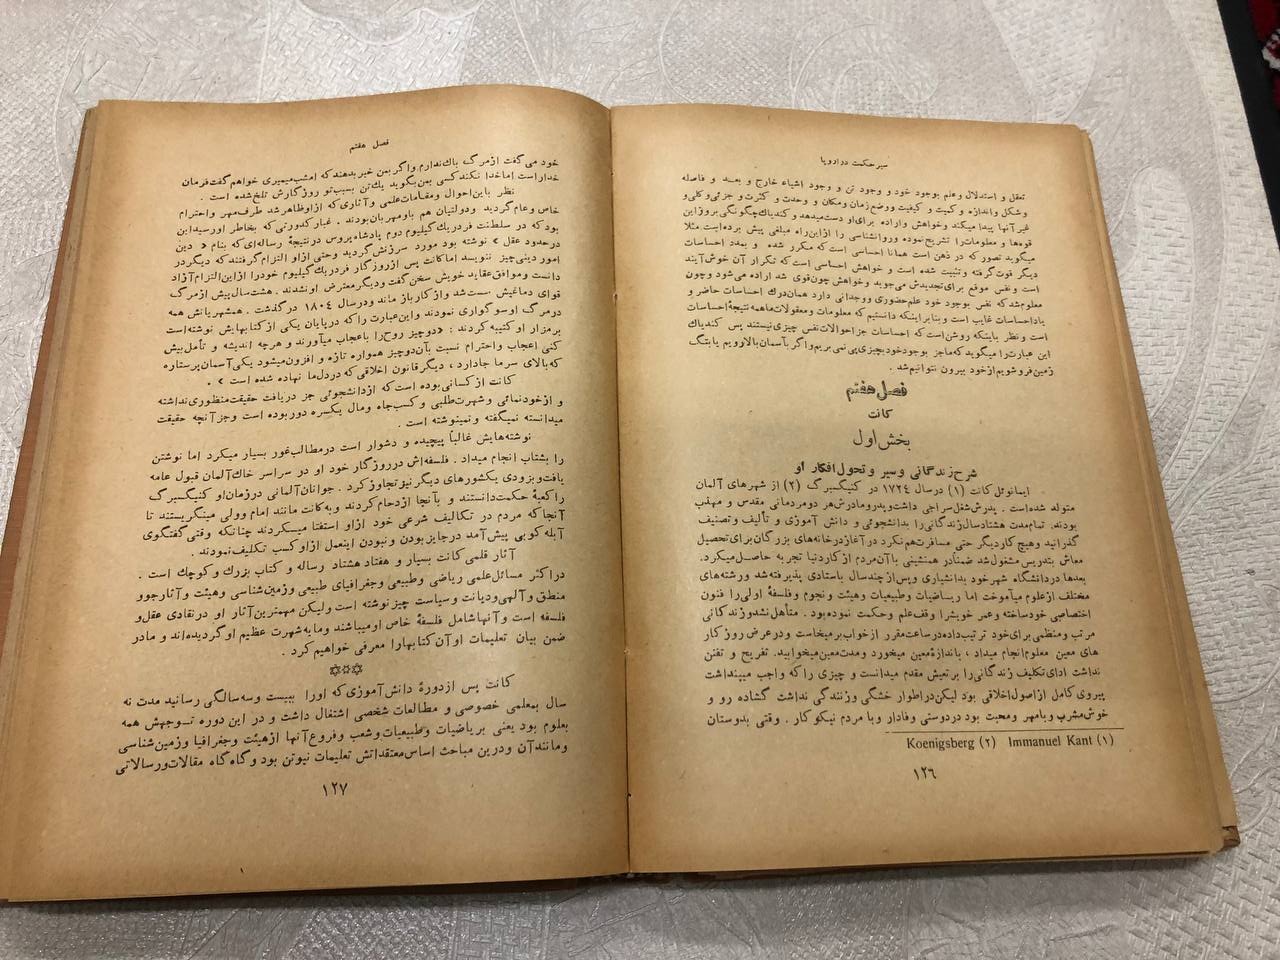 سیر حکمت در اروپا
تعقل و استدلال و علم بوجود خود و وجود تن و وجود اشیاء خارج و بعد و فاصله
و شکل و اندازه و کمیت و کیفیت و وضع زمان و مکان و وحدت و کثرت و جزئی و کلی و
غیر آنها پیدا میکند و خواهش و اراده برای او دست میدهد و کندیاك چگونگی بروز این
قوه‌ها و معلومات را تشریح نموده و روانشناسی را از این راه مبلغی پیش برده است مثلا
میگوید تصور که در ذهن است همانا احساسی است که مکرر شده و بمدد احساسات
دیگر قوت گرفته و تثبیت شده است و خواهش احساسی است که تکرار آن خوش آیند
است و نفس موقع برای تجدیدش می‌جوید و خواهش چون قوی شد اراده می‌شود و چون
معلوم شد که نفس بوجود خود علم حضوری و وجدانی دارد همان درك احساسات حاضر و
یاد احساسات غایب است و بنابر اینکه دانستیم که معلومات و معقولات ما همه نتیجهٔ احساسات
است و نظر باینکه روشن است که احساسات جز احوالات نفس چیزی نیستند پس کندیاك
این عبارت را میگوید که ما جز بوجود خود بچیزی پی نمی‌بریم و اگر بآسمان بالا رویم یا بتنگ
زمین فرو شویم از خود بیرون نتوانیم شد .
فصل هفتم
کانت
بخش اول
شرح زندگانی و سیر و تحول افکار او
ایمانوئل کانت (۱) در سال ۱۷۲٤ در کنیگسبرگ (۲) از شهرهای آلمان
متولد شده است . پدرش شغل سراجی داشت و پدر و مادرش هر دو مردمانی مقدس و مهذب
بودند. تمام مدت هشتاد سال زندگانی را بدانشجوئی و دانش آموزی و تألیف و تصنیف
گذرانید و هیچ کار دیگر حتی مسافرت هم نکرد در آغاز در خانه‌های بزرگان برای تحصیل
معاش بتدریس مشغول شد ضمناً در همنشینی با آن مردم از کار دنیا تجربه حاصل میکرد.
بعدها در دانشگاه شهر خود بدانشیاری و پس از چند سال باستادی پذیرفته شد و رشته‌های
مختلف از علوم میآموخت اما ریاضیات و طبیعیات و هیئت و نجوم و فلسفهٔ اولی را فنون
اختصاصی خود ساخته و عمر خویش را وقف علم و حکمت نموده بود . متأهل نشد و زندگانی
مرتب و منظمی برای خود ترتیب داده در ساعت مقرر از خواب برمیخاست و در عرض روز کار
های معین معلوم انجام میداد ، باندازهٔ معین میخورد و مدت معین میخوابید. تفریح و تفنن
نداشت ادای تکلیف زندگانی را بر تعیش مقدم میدانست و چیزی را که واجب میپنداشت
پیروی کامل از اصول اخلاقی بود لیکن در اطوار خشگی و زنندگی نداشت گشاده رو و
خوش مشرب و بامهر و محبت بود در دوستی وفادار و با مردم نیکوکار . وقتی بدوستان
Koenigsberg (۲) Immanuel Kant (۱)
۱۲٦
فصل هفتم
خود می‌گفت از مرگ باك ندارم و اگر بمن خبر بدهند که امشب میمیری خواهم گفت فرمان
خدا راست اما خدا نکند کسی بمن بگوید یك تن بسبب تو روزگارش تلخ شده است .
نظر باین احوال و مقامات علمی و آثاری که از او ظاهر شد طرف مهر و احترام
خاص و عام گردید و دولتیان هم باو مهربان بودند . غبار کدورتی که بخاطر او رسید این
بود که در سلطنت فردریك کیلیوم دوم پادشاه پروس در نتیجهٔ رساله‌ای که بنام « دین
در حدود عقل » نوشته بود مورد سرزنش گردید و حتی از او التزام گرفتند که دیگر در
امور دینی چیز ننویسد اما کانت پس از روزگار فردریك کیلیوم خود را از این التزام آزاد
دانست و موافق عقاید خویش سخن گفت و دیگر معترض او نشدند . هشت سال پیش از مرگ
قوای دماغیش سست شد و از کار باز ماند و در سال ۱۸۰٤ درگذشت . همشهریانش همه
در مرگ او سوگواری نمودند و این عبارت را که در پایان یکی از کتابهایش نوشته است
بر مزار او کتیبه کردند : « دو چیز روح را باعجاب میآورند و هر چه اندیشه و تأمل بیش
کنی اعجاب و احترام نسبت بآن دو چیز همواره تازه و افزون میشود یکی آسمان پرستاره
که بالای سر ما جا دارد ، دیگر قانون اخلاقی که در دل ما نهاده شده است » .
کانت از کسانی بوده است که از دانشجوئی جز دریافت حقیقت منظوری نداشته
و از خودنمائی و شهرت طلبی و کسب جاه و مال یکسره دور بوده است و جز آنچه حقیقت
میدانسته نمیگفته و نمینوشته است .
نوشته‌هایش غالباً پیچیده و دشوار است در مطالب غور بسیار میکرد اما نوشتن
را بشتاب انجام میداد . فلسفه‌اش در روزگار خود او در سراسر خاك آلمان قبول عامه
یافت و بزودی یکشورهای دیگر نیز تجاوز کرد . جوانان آلمانی در زمان او کنیگسبرگ
را کعبهٔ حکمت دانستند و بآنجا ازدحام کردند و به کانت مانند امام و ولی مینگریستند تا
آنجا که مردم در تکالیف شرعی خود از او استفتا میکردند چنانکه وقتی گفتگوی
آبله کوبی پیش آمد در جایز بودن و نبودن این عمل از او کسب تکلیف نمودند .
آثار قلمی کانت بسیار و هفتاد هشتاد رساله و کتاب بزرك و کوچك است .
در اکثر مسائل علمی ریاضی و طبیعی و جغرافیای طبیعی و زمین شناسی و هیئت و آثار جو و
منطق و آلهی و دیانت و سیاست چیز نوشته است ولیکن مهمترین آثار او در نقادی عقل و
فلسفه است و آنها شامل فلسفهٔ خاص او میباشند و مایهٔ شهرت عظیم او گردیده‌اند و ما در
ضمن بیان تعلیمات او آن کتابها را معرفی خواهیم کرد .
✡✡✡
کانت پس از دورهٔ دانش آموزی که او را ببیست و سه سالگی رسانید مدت نه
سال بمعلمی خصوصی و مطالعات شخصی اشتغال داشت و در این دوره توجهش همه
بعلوم بود یعنی بریاضیات و طبیعیات و شعب و فروع آنها از هیئت و جغرافیا و زمین شناسی
و مانند آن و درین مباحث اساس معتقداتش تعلیمات نیوتن بود و گاه گاه مقالات و رسالاتی
۱۲۷